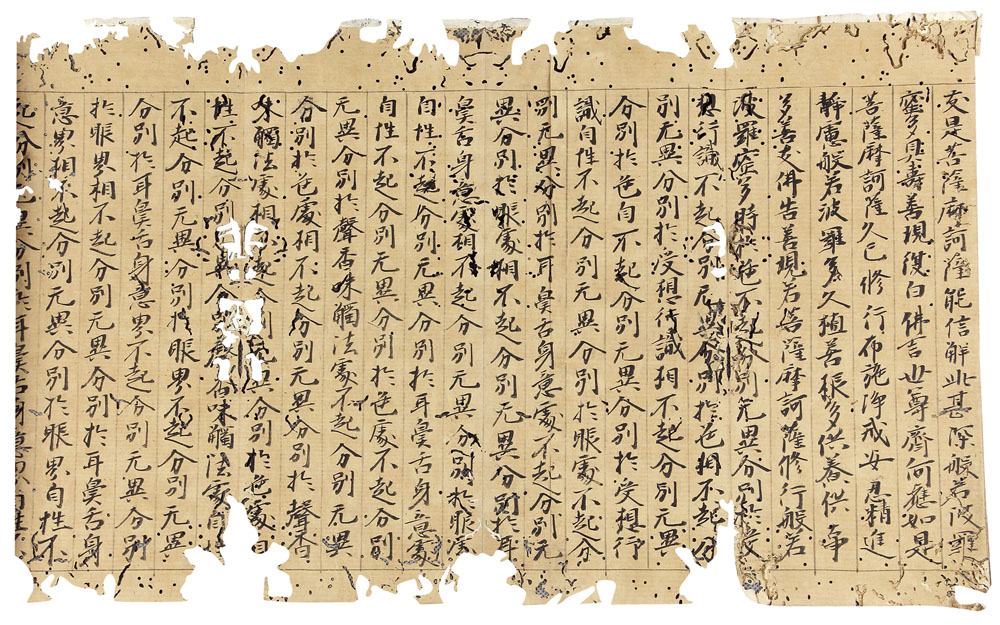 友是菩薩摩訶薩能信解此甚深般若波羅
蜜多具壽善現復白佛言世尊齊何應知是
菩薩摩訶薩久已修行布施淨戒安忍精進
靜慮般若波羅蜜多久殖善根多供養供事
多善友佛告善現若菩薩摩訶薩修行般若
波羅蜜多時於色不起分別无異分別於受
想行識不起分別无異分別於色相不起分
別无異分別於受想行識相不起分別无異
分別於色自不起分別无異分別於受想行
識自性不起分別无異分別於眼處不起分
別无異分別於耳鼻舌身意處不起分別无
異分別於眼處相不起分別无異分別於耳
鼻舌身意處相不起分別无異分別於眼處
自性不起分別无異分別於耳鼻舌身意處
自性不起分別无異分別於色處不起分別
无異分別於聲香味觸法處不起分別无異
分別於色處相不起分別无異分別於聲香
味觸法處相不起分別无異分別於色處自
性不起分別異分別於聲香味觸法處自
不起分別无異分別於眼界不起分別无異
分別於耳鼻舌身意界不起分別无異分別
於眼界相不起分別无異分別於耳鼻舌身
意界相不起分別无異分別於眼界自性不
起分別異分別於耳鼻舌身意界自性